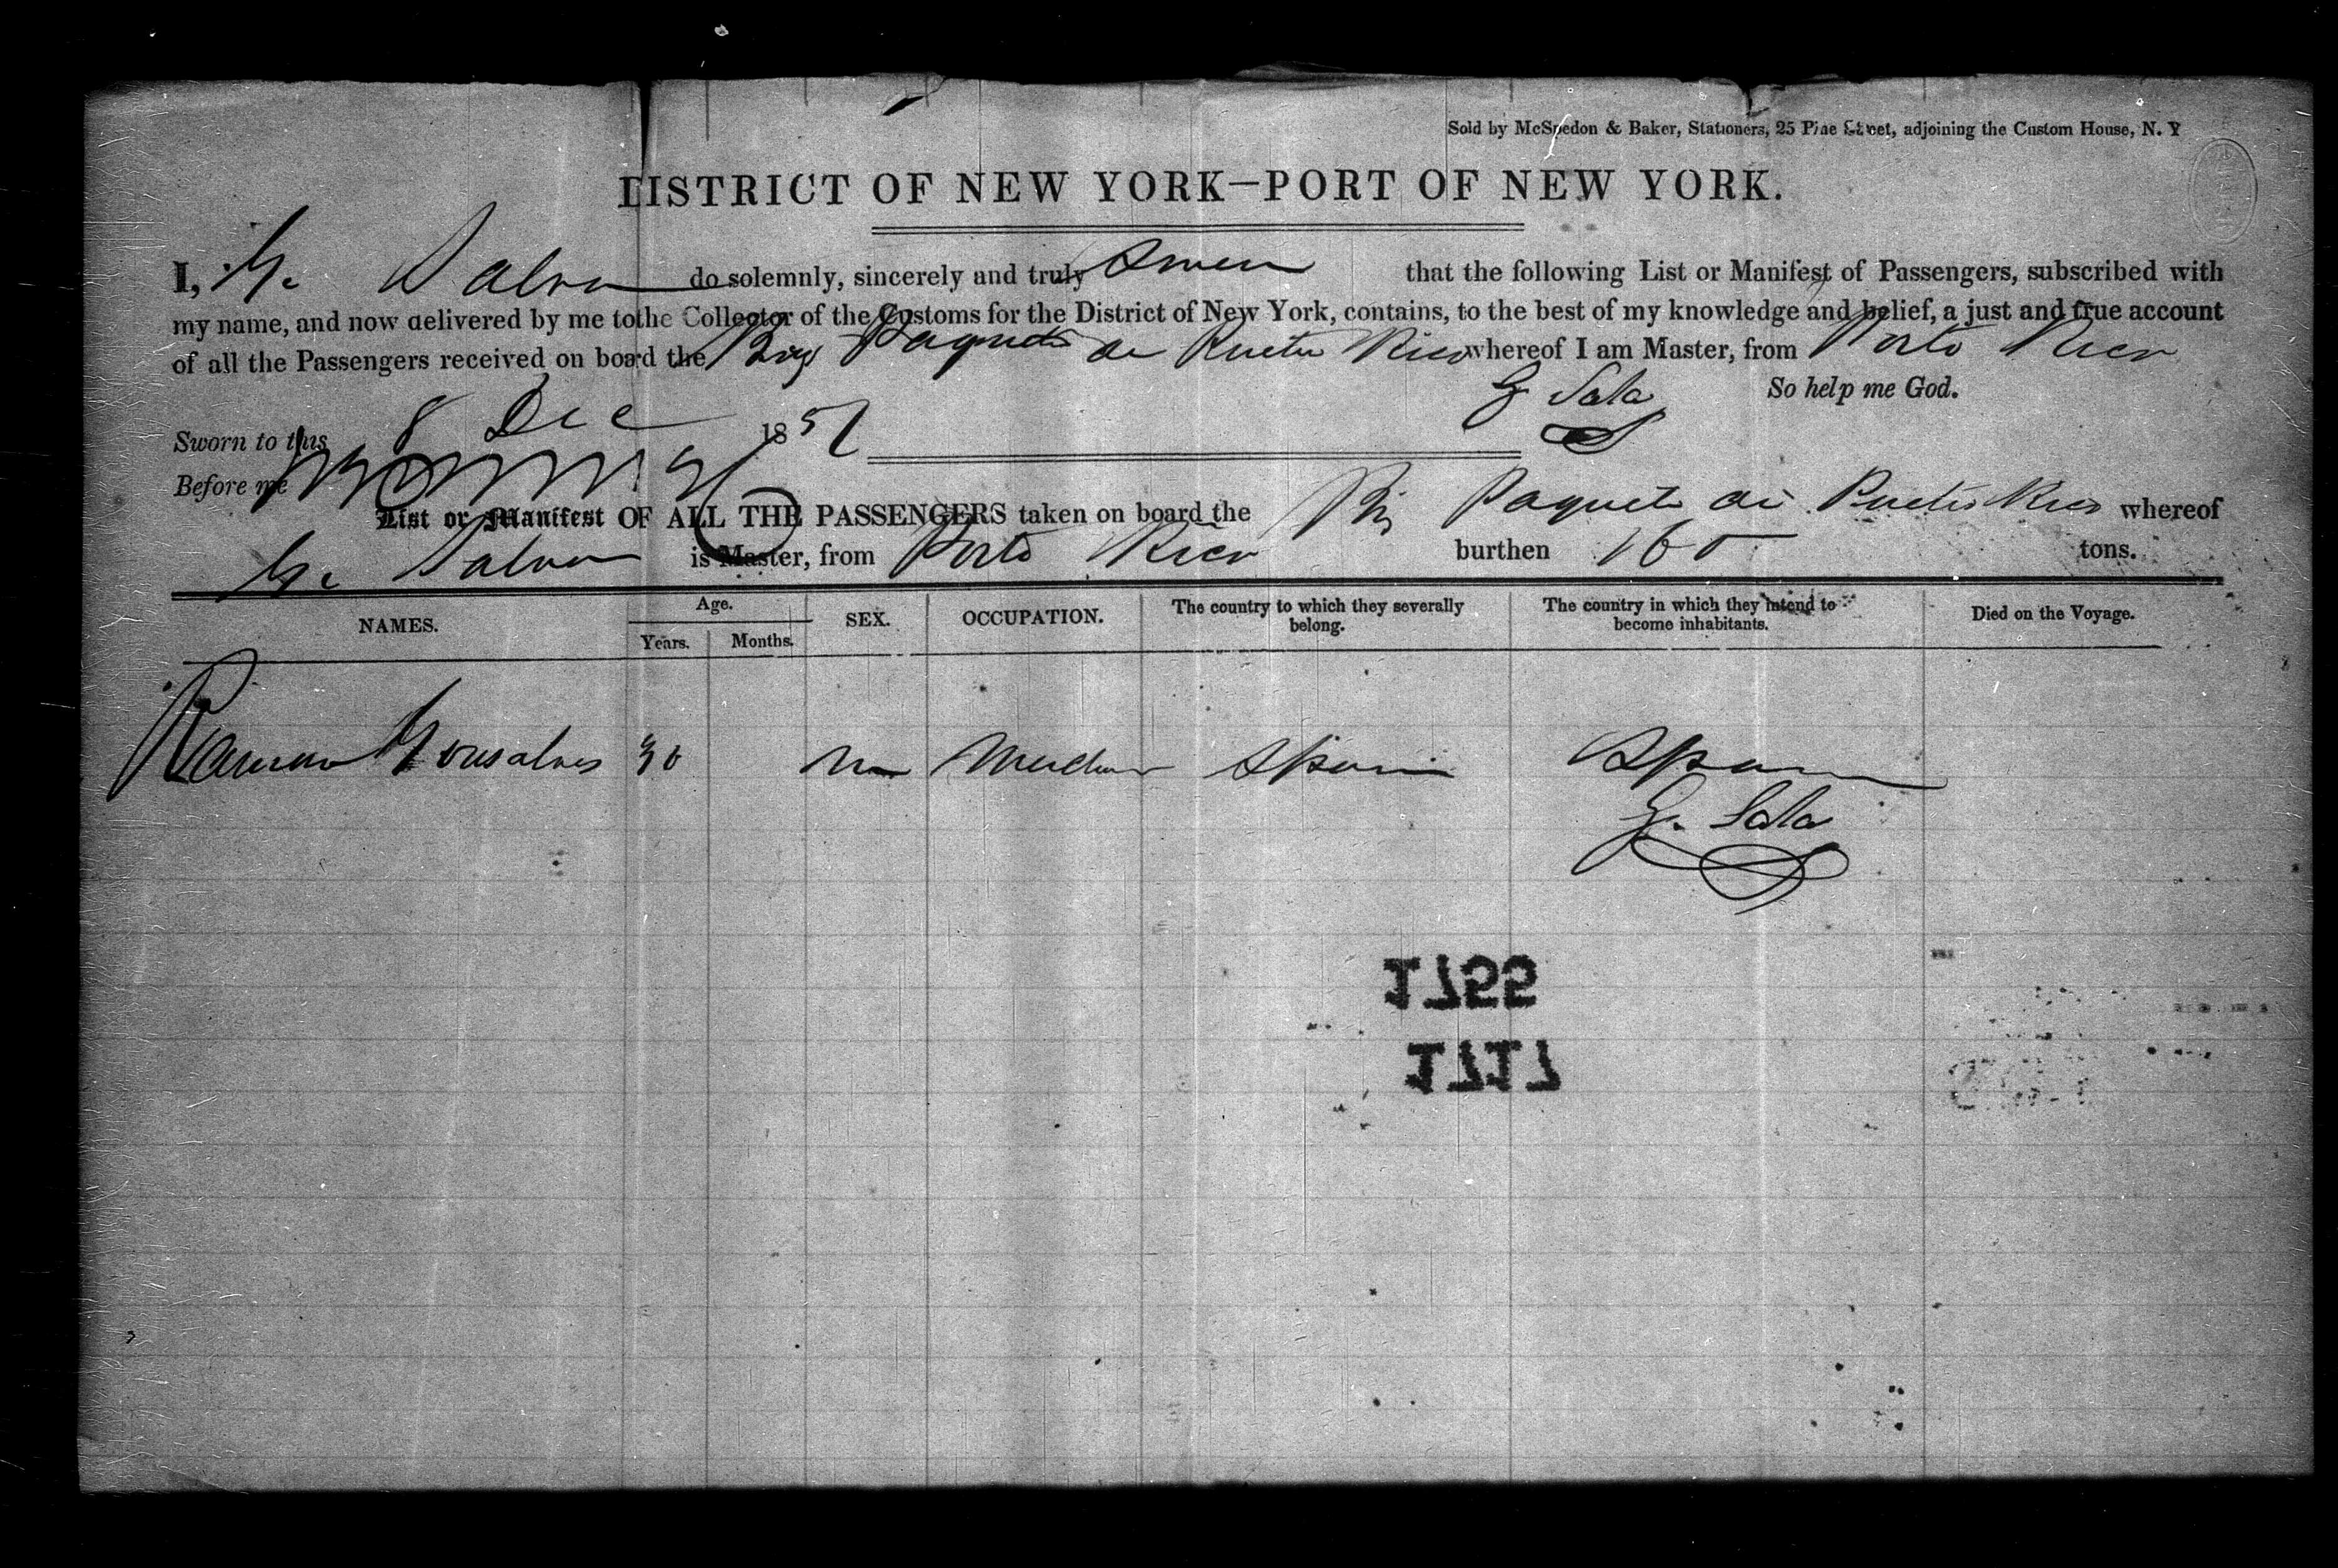 Sold by McSpedon & Baker, Stationers, 25 Pine Street, adjoining the Custom House, N. Y
DISTRICT OF NEW YORK—PORT OF NEW YORK.
I, G. do solemnly, sincerely and truly Swear that the following List or Manifest of Passengers, subscribed with
my name, and now delivered by me to the Collector of the Customs for the District of New York, contains, to the best of my knowledge and belief, a just and true account
of all the Passengers received on board the Brig Paquete de Puerto Rico whereof I am Master, from Porto Rico
G Sala So help me God.
Sworn to this 8 Dec 1851
Before me
List or Manifest OF ALL THE PASSENGERS taken on board the Brig Paquete de Puerto Rico whereof
G. is Master, from Porto Rico burthen 160 tons.
NAMES. Age. Years. Months. SEX. OCCUPATION. The country to which they severally belong. The country in which they intend to become inhabitants. Died on the Voyage.
Ramon Gonsalves 30 m Merchant Spain Spain
G. Sala
1755
1717